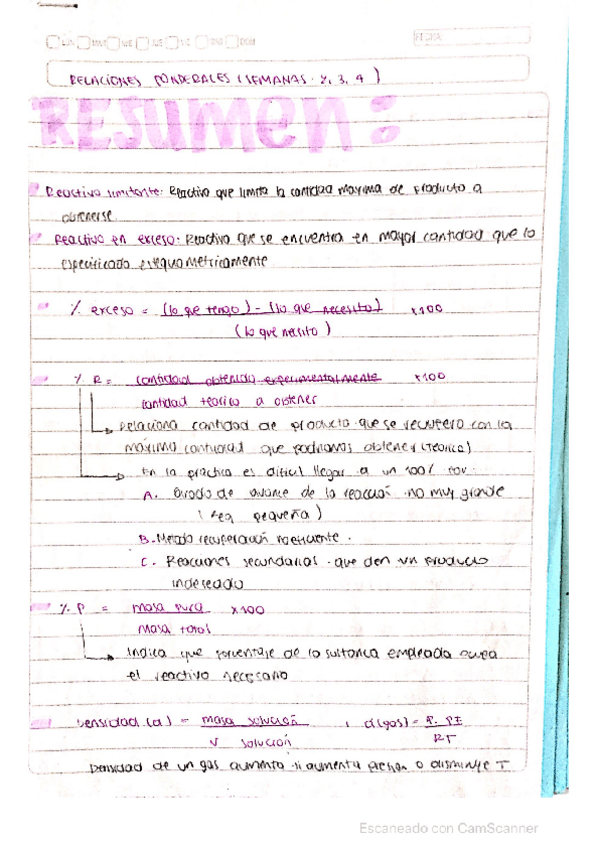 LUN MAR MIE JUE VIE SAB DOM FECHA:
RELACIONES PONDERALES (SEMANAS 2, 3, 4)
RESUMEN:
Reactivo limitante: Reactivo que limita la cantidad máxima de producto a
obtenerse
Reactivo en exceso: Reactivo que se encuentra en mayor cantidad que lo
especificado estequiometricamente
% exceso = (lo que tengo) - (lo que necesito) x100
(lo que necesito)
% R = cantidad obtenida experimentalmente x100
cantidad teórica a obtener
Relaciona cantidad de producto que se recupero con la
máxima cantidad que podriamos obtener (teorica)
En la práctica es dificil llegar a un 100% por
A. Grado de avance de la reacción no muy grande
(Keq pequeña)
B. Metodo recuperación ineficiente.
C. Reacciones secundarias que den un producto
indeseado
% P = masa pura x100
masa total
Indica que porcentaje de la sustancia empleada
el reactivo necesario
Densidad (d) = masa solución , d(gas) = P. PF
V solución RT
Densidad de un gas aumenta si aumenta presion o disminuye T
Escaneado con CamScanner